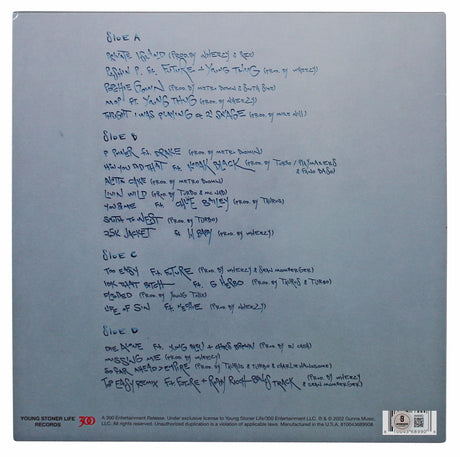 SiDE A
PRIVATE ISLAND (PROD. BY WHEEZY &
PUSHIN P. Ft. FUTURE + YOUNG THUG (PROD. BY WHEEZY)
POOCHIE GOWN (PROD. BY METRO BOOMIN & SOUTH SIDE)
MOP Ft. YOUNG THUG (PROD. BY WHEEZY)
THOUGHT I WAS PLAYING Ft. 21 SAVAGE (PROD. BY MIKE WILL)
SiDE B
P POWER Ft. DRAKE (PROD. BY METRO BOOMIN)
HOW YOU DID THAT Ft. KODAK BLACK (PROD. BY TURBO /
ALOTTA CAKE (PROD. BY METRO BOOMIN)
LIVIN WILD (PROD. BY TURBO &
YOU & ME Ft. CHLOE BAILEY (PROD. BY TAURUS)
SOUTH TO WEST (PROD. BY TURBO)
25K JACKET Ft. Lil BABY (PROD. BY WHEEZY)
SiDE C
TOO EASY Ft. FUTURE (PROD. BY WHEEZY & SEAN MOMBERGER)
IDK THAT BITCH Ft. G HERBO (PROD. BY TAURUS & TURBO)
FLOODED (PROD. BY YOUNG
LIFE OF SIN Ft. NECHIE (PROD. BY WHEEZY)
SiDE D
DIE ALONE Ft. YUNG BLEU + CHRIS BROWN (PROD. BY
MISSING ME (PROD. BY WHEEZY)
SO FAR AHEAD > EMPIRE (PROD. BY TAURUS & TURBO & CHARLIE HANDSOME)
TOO EASY REMIX Ft. FUTURE + RODDY RICCH - BONUS TRACK (PROD. BY WHEEZY
& SEAN MOMBERGER)
YOUNG STONER LIFE
RECORDS
300
A 300 Entertainment Release. Under exclusive license to Young Stoner Life/300 Entertainment LLC. ℗ & © 2022 Gunna Music,
LLC. All rights reserved. Unauthorized duplication is a violation of applicable laws. Manufactured in the U.S.A. 810043689908